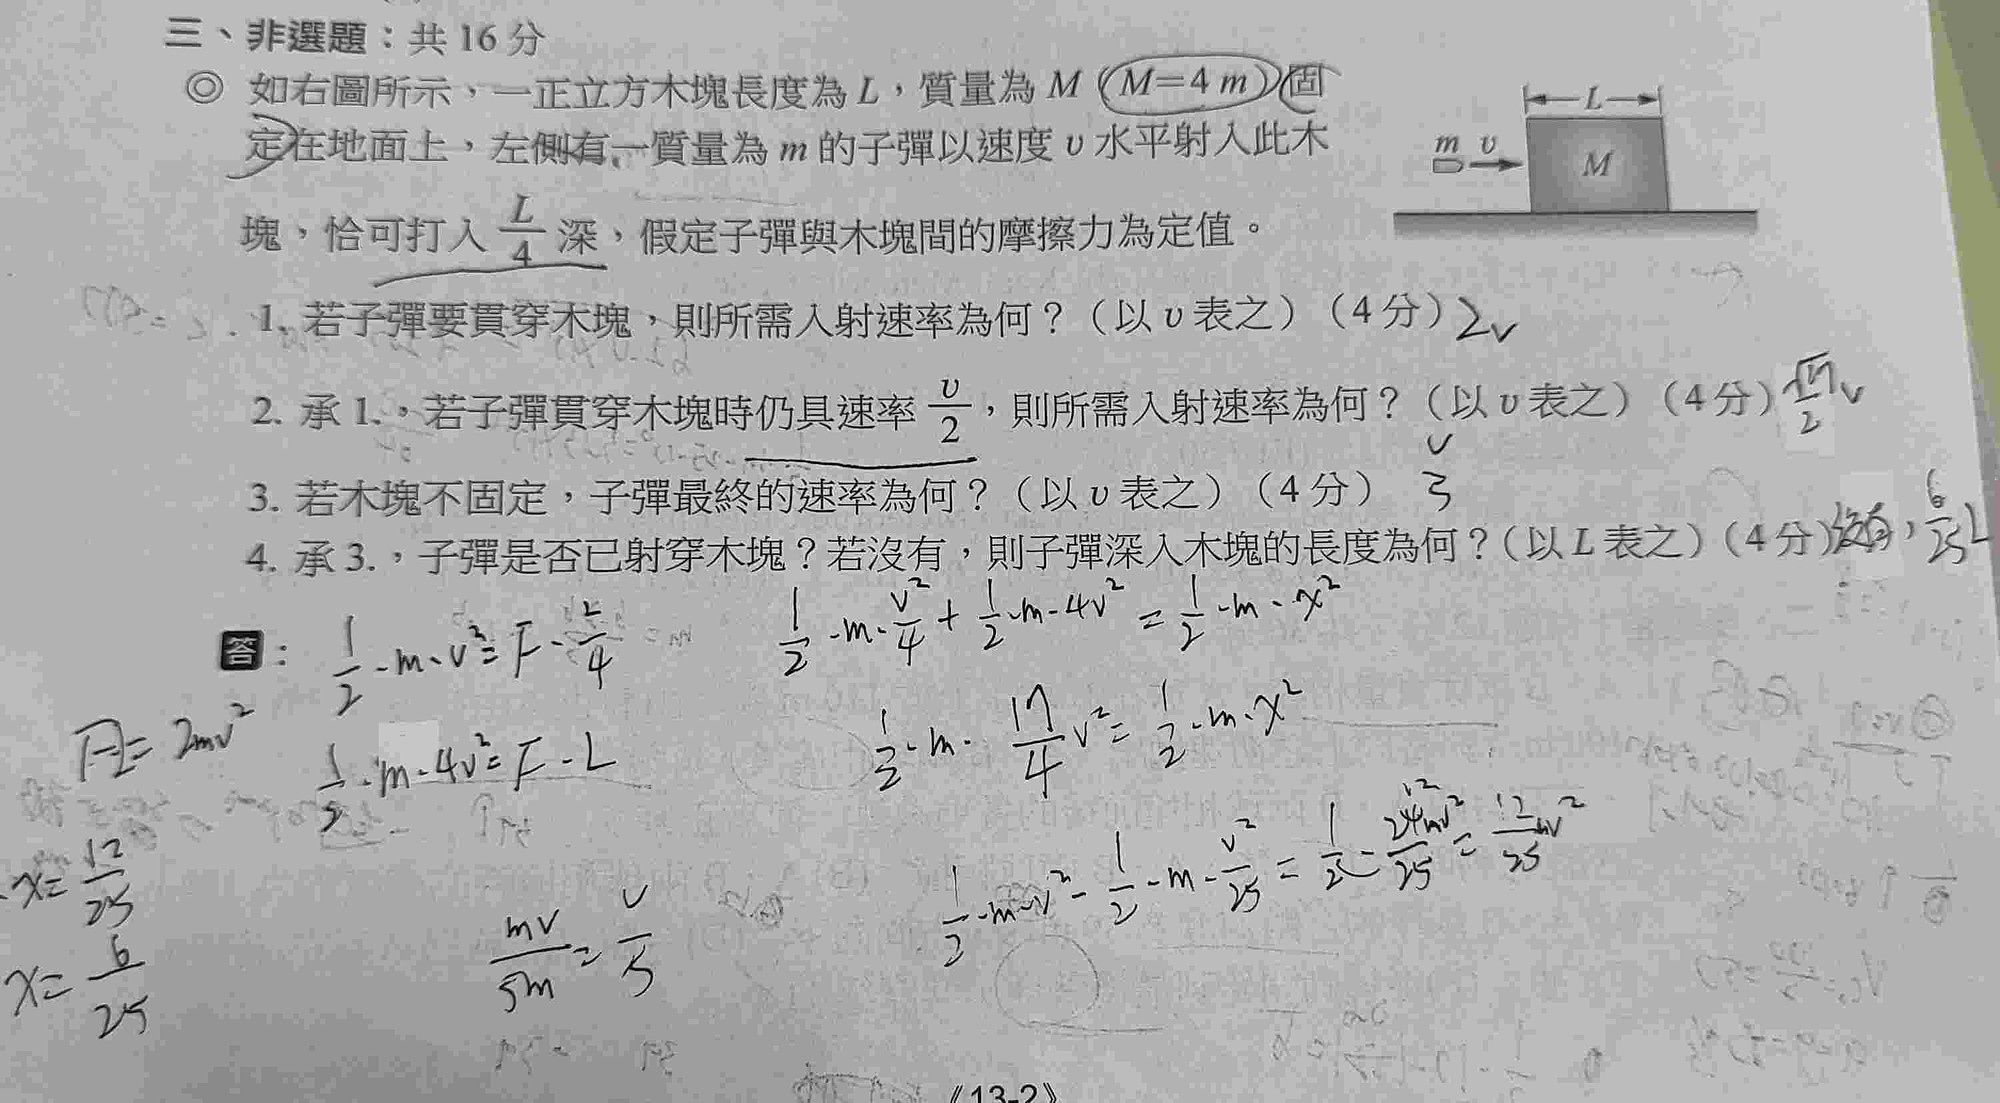 三、非選題：共 16 分
◎ 如右圖所示，一正立方木塊長度為 L，質量為 M（M＝4 m）固
定在地面上，左側有一質量為 m 的子彈以速度 υ 水平射入此木
塊，恰可打入 L/4 深，假定子彈與木塊間的摩擦力為定值。
L
m υ
M
1. 若子彈要貫穿木塊，則所需入射速率為何？（以 υ 表之）（4 分） 2v
2. 承 1.，若子彈貫穿木塊時仍具速率 υ/2，則所需入射速率為何？（以 υ 表之）（4 分） √17/2 v
3. 若木塊不固定，子彈最終的速率為何？（以 υ 表之）（4 分） v/5
4. 承 3.，子彈是否已射穿木塊？若沒有，則子彈深入木塊的長度為何？（以 L 表之）（4 分） 沒有，6/25 L
答：
1/2 · m · v² = F · L/4
1/2 · m · v²/4 + 1/2 · m · 4v² = 1/2 · m · x²
FL = 2mv²
1/2 · m · 4v² = F · L
1/2 · m · 17/4 v² = 1/2 · m · x²
x = 12/25
1/2 · m · v² - 1/2 · m · v²/25 = 1/2 · 24mv²/25 = 12/25 mv²
12
mv/5m = v/5
x = 6/25
《13-2》